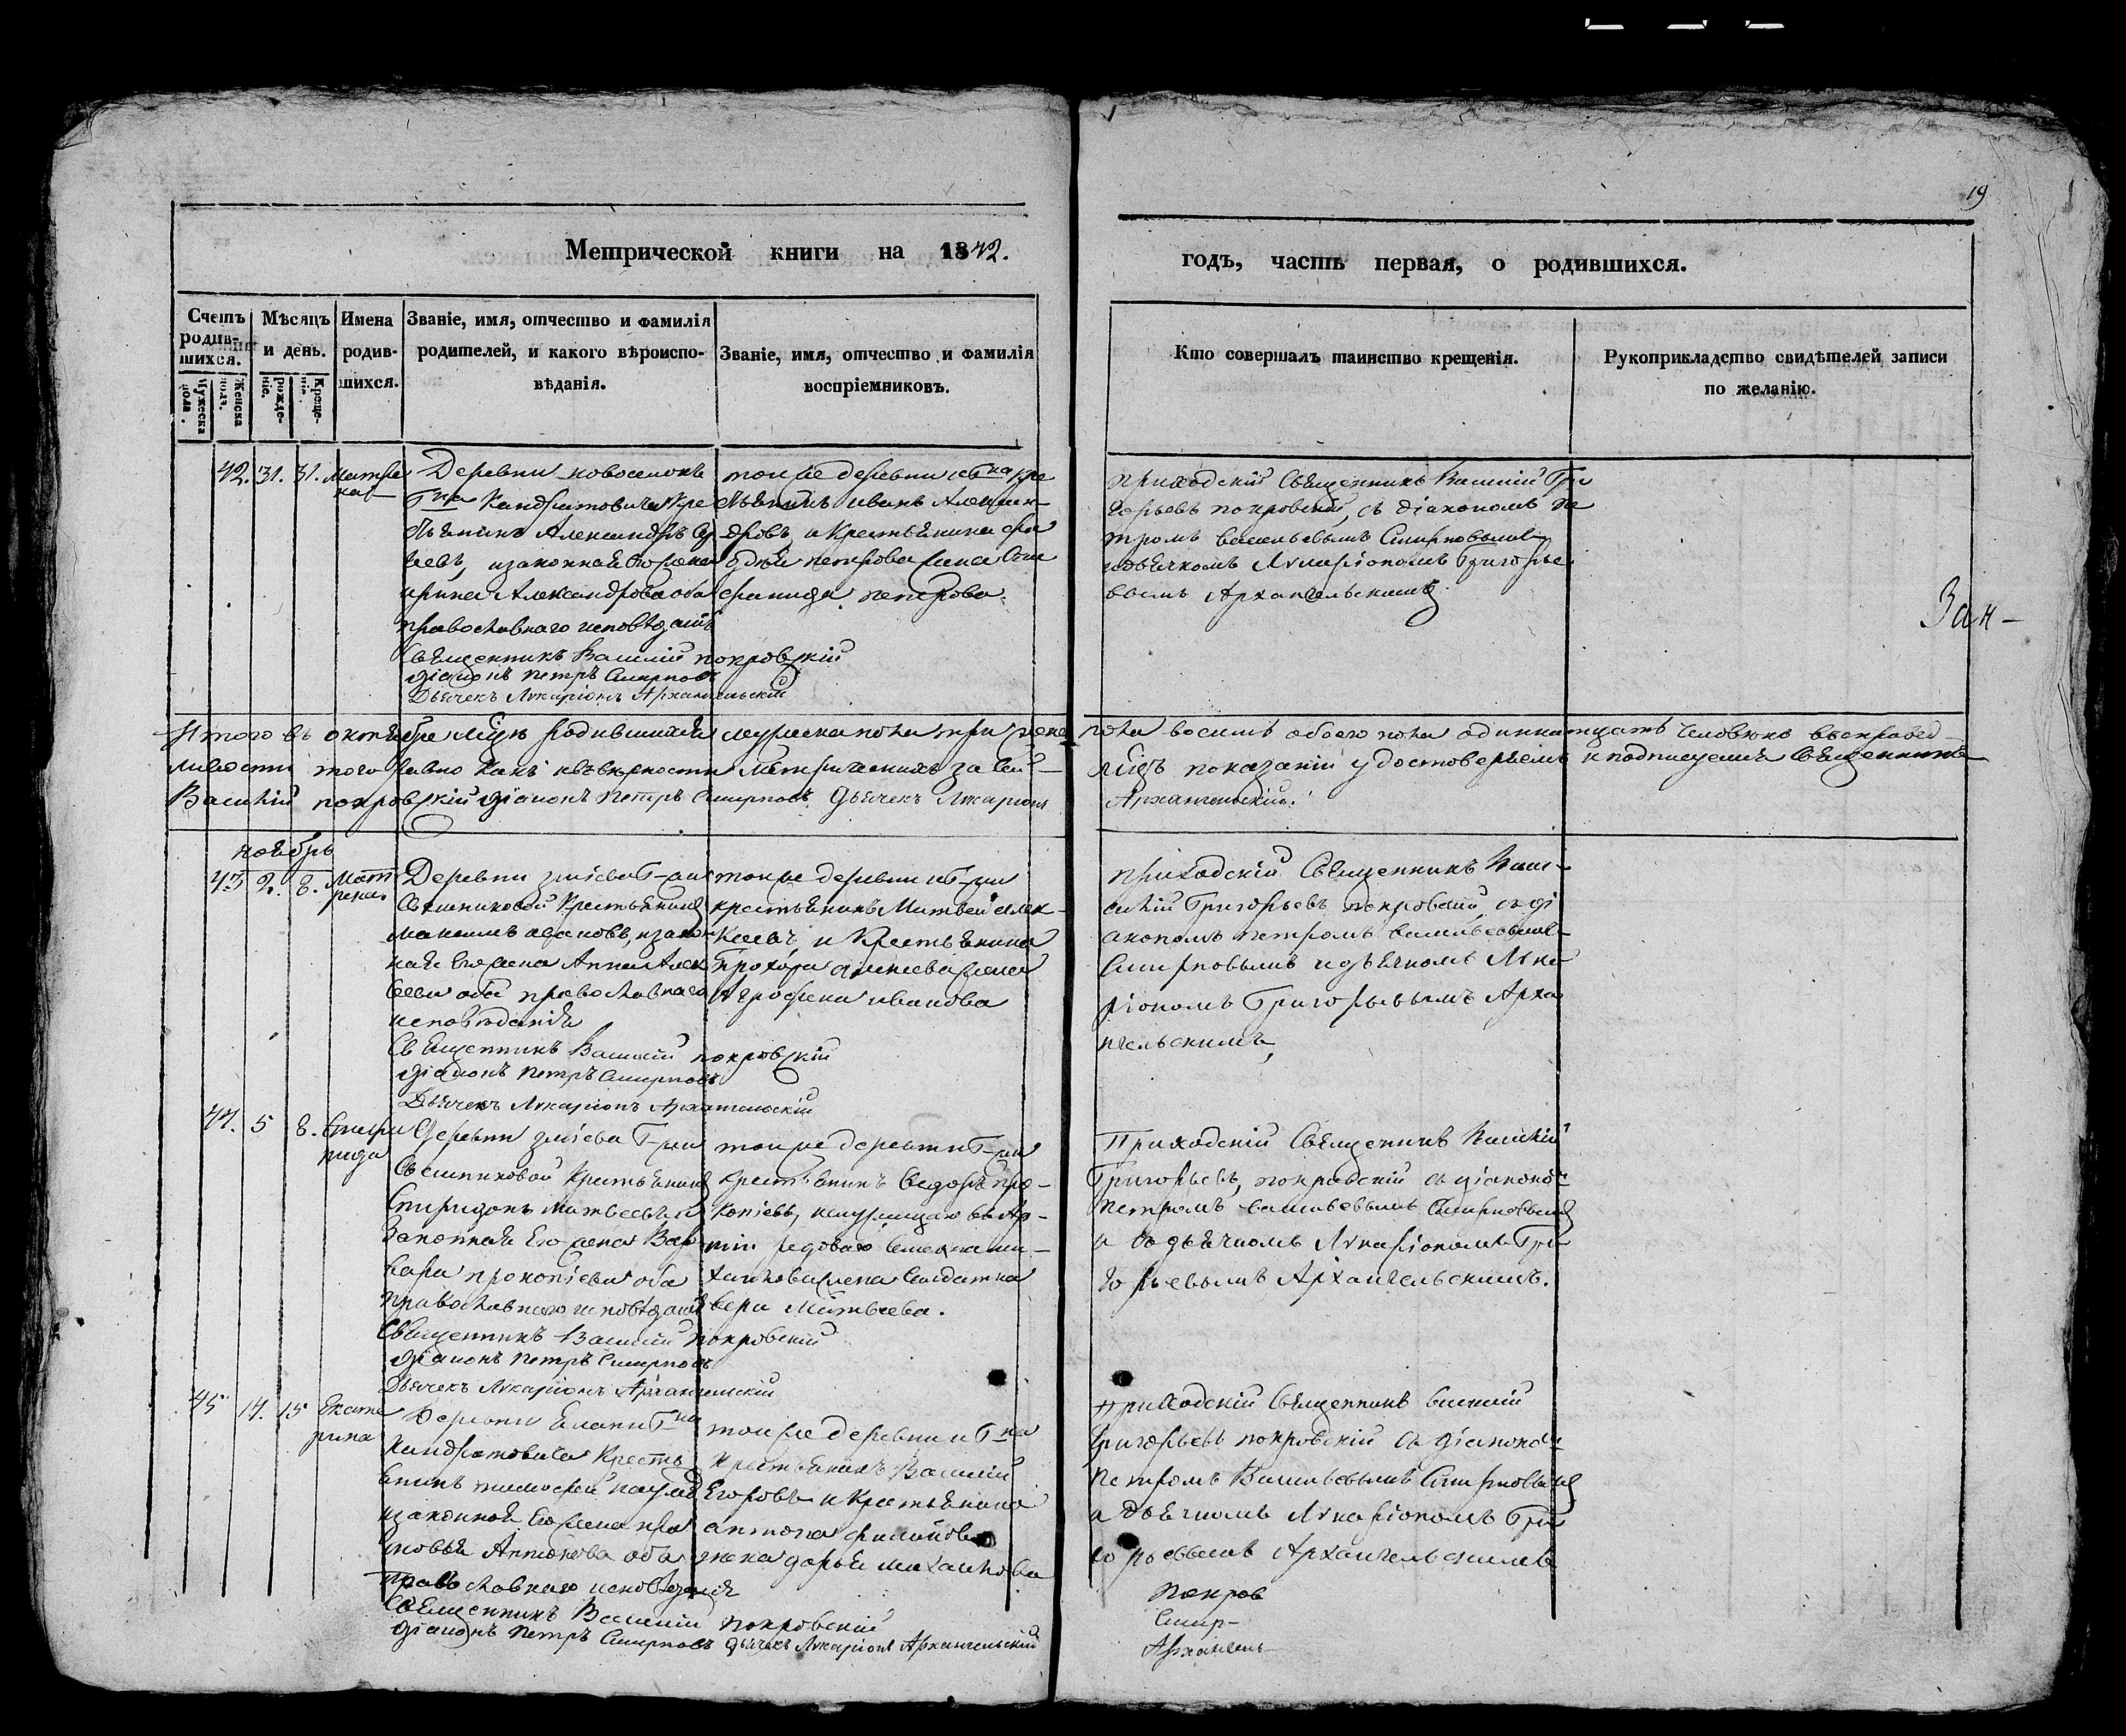 19
Метрической книги на 1842.
годъ, часть первая, о родившихся.
Счетъ родив-шихся.
Мѣсяцъ и день.
Имена родив-шихся.
Званіе, имя, отчество и фамилія родителей, и какого вѣроиспо-вѣданія.
Званіе, имя, отчество и фамилія воспріемниковъ.
Кто совершалъ таинство крещенія.
Рукоприкладство свидѣтелей записи по желанію.
Мужеска пола.
Женска пола.
рожде-ніе.
Креще-ніе.
42. 31. 31. Матре
на
Деревни новоселокъ
Г-на Кандратовича Кре
стьянинъ Александръ
законная Его жена
ирина Александрова оба
православнаго исповѣданія
Священникъ Василій покровскій
діаконъ петръ Смирновъ
Дьячекъ Лукаріонъ Архангельскій
той же деревни Г-на кре
стьянинъ иванъ Алексан-
дровъ, и Крестьянина
петрова жена
петрова
приходскій Священникъ Василій Гри
горьевъ покровскій, съ діакономъ пе
тромъ васильевымъ Смирновымъ
идьячкомъ Лукаріономъ Григорье
вымъ Архангельскимъ
Зак-
Итого въ октябре мцѣ родившихся мужеска пола три женска
пола восемь обоего пола одиннатцать человѣкъ въсправед-
ливости того равно какъ ивѣрности Метрическихъ за сей
мцъ показаній удостоверяемъ и подписуемъ Священникъ
Василій покровскій діаконъ Петръ Смирновъ Дьячекъ Лукаріонъ
Архангельскій.
ноябрь
43 2. 8. Мат
рена
Деревни зміева Г-жи
Свешниковой Крестьянинъ
Максимъ изакон
ная Его жена Анна Алек
сеева оба православнаго
исповѣданія
Священникъ Василій покровскій
діаконъ петръ Смирновъ
Дьячекъ Лукаріонъ Архангельскій
той же деревни и Г-жи
крестьянинъ Матвей Алек-
сеевъ, и Крестьянина
Прохора Алексеева жена
Агрофена иванова
приходскій Священникъ Васи-
лій Григорьевъ покровскій, съ ді
акономъ петромъ васильевымъ
Смирновымъ идьячкомъ Лука
ріономъ Григорьевымъ Арха
нгельскимъ,
44. 5 8. Спири
нида
Деревни зміева Г-жи
Свешниковой Крестьянинъ
Спиридонъ Матвеевъ и
Законная Его жена Вар
вара прокопіева оба
православнаго исповѣданія
Священникъ Василій покровскій
діаконъ петръ Смирновъ
Дьячекъ Лукаріонъ Архангельскій
той же деревни Г-жи
Крестьянинъ Ѳедоръ про-
копіевъ, инаходящаго въ Ар-
міи редоваго Семена ми-
хаилова жена Салдатка
вера Матвеева.
Приходскій Священникъ Василій
Григорьевъ, покровскій съ діаконо
петромъ васильевымъ Смирновымъ
и съ дьячкомъ Лукаріономъ Гри
горьевымъ Архангельскимъ.
45 14. 15 Екате
рина
Деревни Г-на
Кандратовича Кресть
янинъ тимофей
изаконная Его жена пра
сковья Антонова оба
православнаго исповѣданія
Священникъ Василій покровскій
діаконъ петръ Смирновъ дьячекъ Лукаріонъ Архангельскій
той же деревни и Г-на
Крестьянинъ Василій
Егоровъ и Крестьянина
антона филипова
жена дарья михаилова
приходскій Священникъ василій
Григорьевъ покровскій съ діаконо
петромъ Васильевымъ Смирновымъ
и дьячкомъ Лукаріономъ Гри
горьевымъ Архангельскимъ
покров
Смир-
Архангель